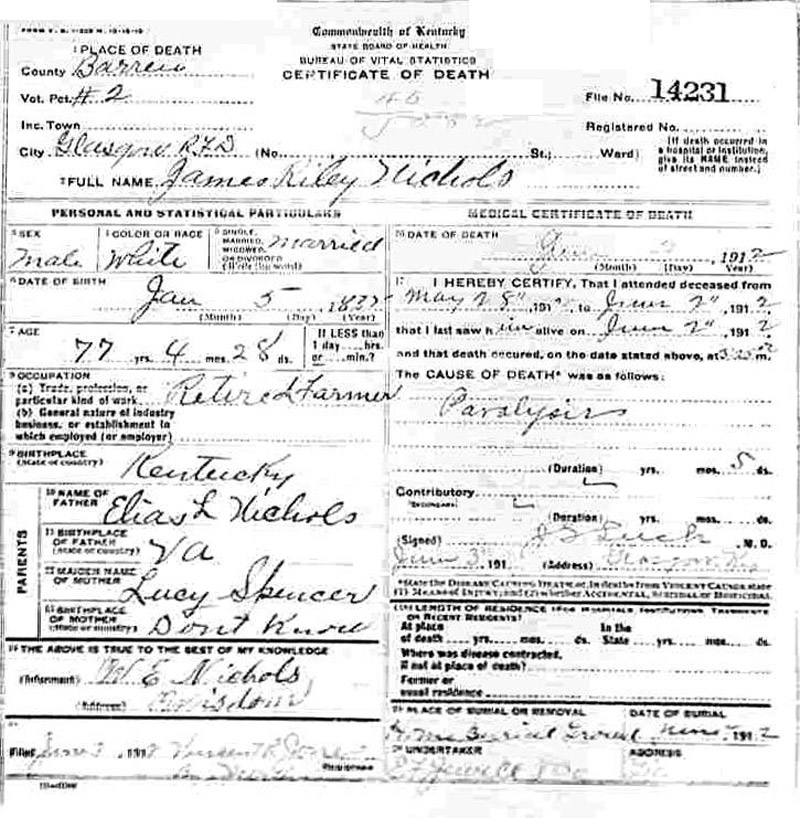 Commonwealth of Kentucky
STATE BOARD OF HEALTH
BUREAU OF VITAL STATISTICS
CERTIFICATE OF DEATH
1 PLACE OF DEATH
County Barren
Vot. Pct. #2
Inc. Town
City Glasgow RFD (No. St.; Ward)
File No. 14231
Registered No.
(If death occurred in
a hospital or institution,
give its NAME instead
of street and number.)
2 FULL NAME James Riley Nichols
PERSONAL AND STATISTICAL PARTICULARS
3 SEX
Male
4 COLOR OR RACE
White
5 SINGLE,
MARRIED,
WIDOWED,
OR DIVORCED
(Write the word)
Married
6 DATE OF BIRTH
Jan 5, 183
(Month) (Day) (Year)
7 AGE
77 yrs. 4 mos. 28 ds.
If LESS than
1 day hrs.
or min.?
8 OCCUPATION
(a) Trade, profession, or
particular kind of work
Retired Farmer
(b) General nature of industry
business, or establishment in
which employed (or employer)
9 BIRTHPLACE
(State or country)
Kentucky
PARENTS
10 NAME OF
FATHER
Elias L Nichols
11 BIRTHPLACE
OF FATHER
(State or country)
Va
12 MAIDEN NAME
OF MOTHER
Lucy Spencer
13 BIRTHPLACE
OF MOTHER
(State or country)
Dont Know
14 THE ABOVE IS TRUE TO THE BEST OF MY KNOWLEDGE
(Informant) W E Nichols
(Address) Wisdom
15
Filed June 3, 191
REGISTRAR
MEDICAL CERTIFICATE OF DEATH
16 DATE OF DEATH
June 2, 1912
(Month) (Day) (Year)
17 I HEREBY CERTIFY, That I attended deceased from
May 28", 191 to June 2", 1912
that I last saw him alive on June 2", 1912
and that death occured, on the date stated above, at m.
The CAUSE OF DEATH* was as follows:
Paralysis
(Duration) yrs. mos. 5 ds.
Contributory
(Secondary)
(Duration) yrs. mos. ds.
(Signed) M. D.
June 3", 191 (Address) Glasgow Ky
*State the DISEASE CAUSING DEATH, or, in deaths from VIOLENT CAUSES, state
(1) MEANS OF INJURY; and (2) whether ACCIDENTAL, SUICIDAL or HOMICIDAL
18 LENGTH OF RESIDENCE (FOR HOSPITALS, INSTITUTIONS, TRANSIENTS
OR RECENT RESIDENTS)
At place
of death yrs. mos. ds.
In the
State yrs. mos. ds.
Where was disease contracted,
if not at place of death?
Former or
usual residence
19 PLACE OF BURIAL OR REMOVAL
Burial Ground
DATE OF BURIAL
1912
20 UNDERTAKER
ADDRESS